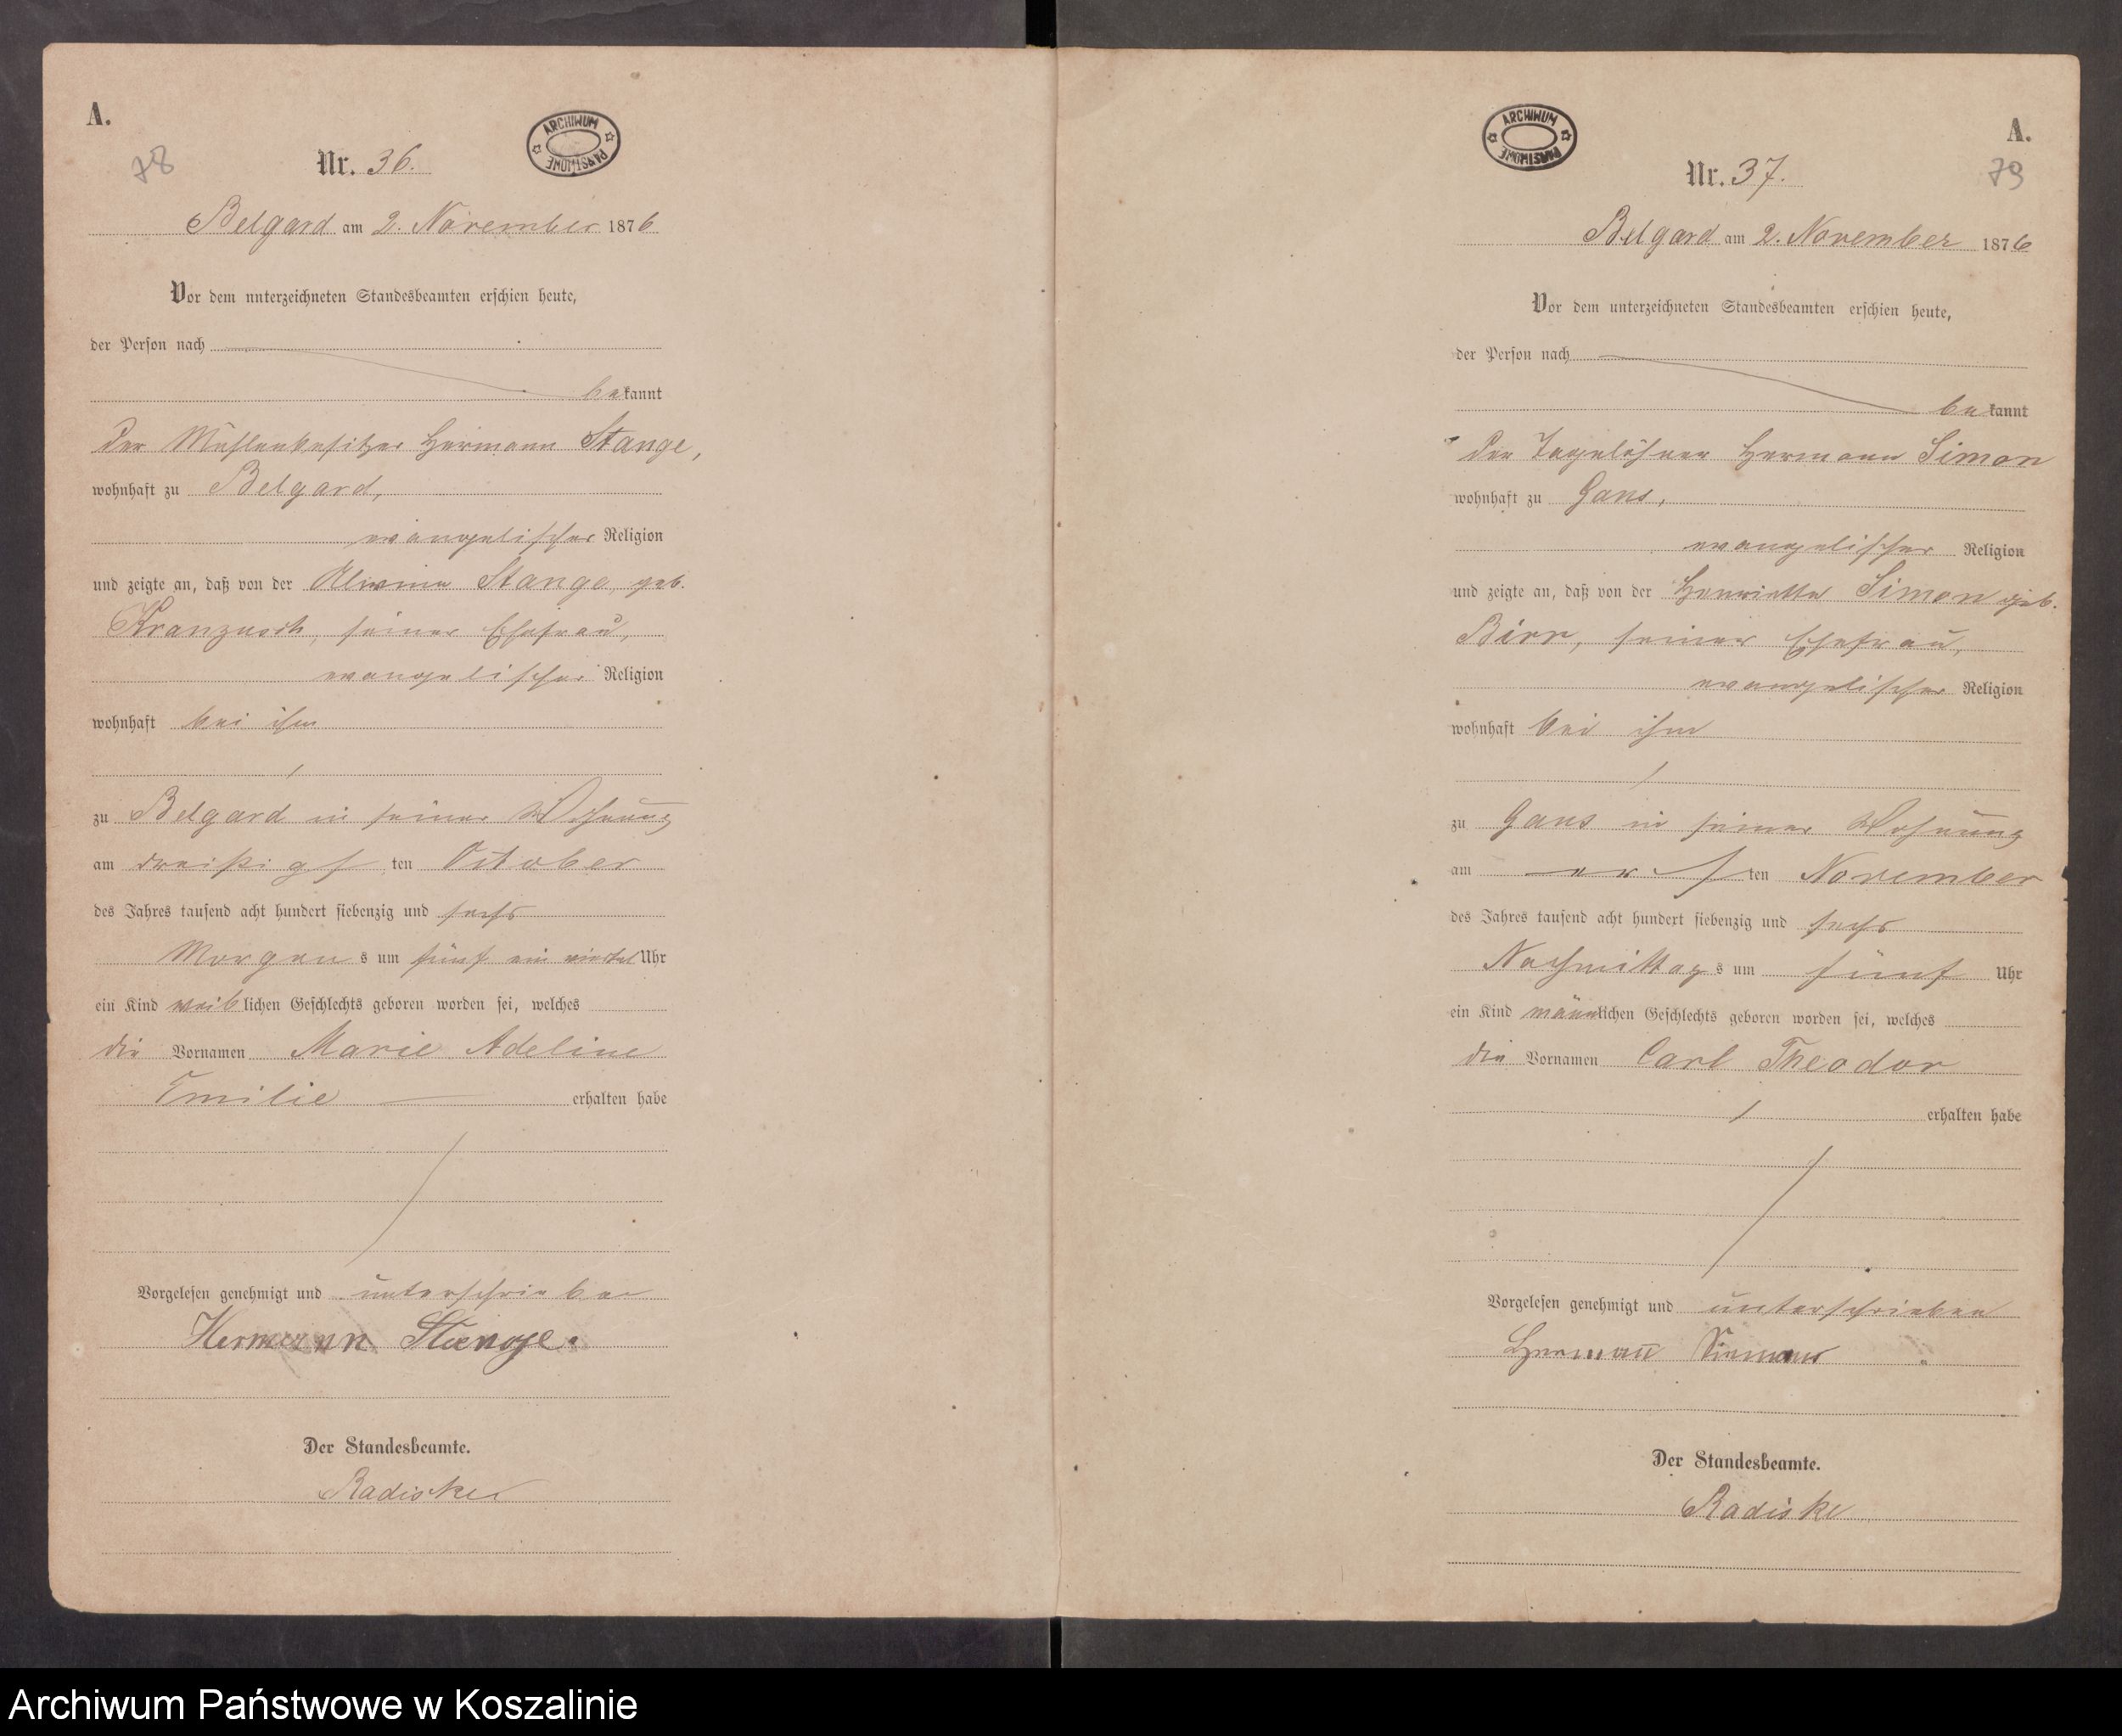 A.
78
Nr. 36.
ARCHIWUM PAŃSTWOWE
Belgard am 2. November 1876
Vor dem unterzeichneten Standesbeamten erschien heute,
der Person nach
bekannt
der Mühlenbesitzer Hermann Stange,
wohnhaft zu Belgard,
evangelischer Religion
und zeigte an, daß von der Alwine Stange, geb.
seiner Ehefrau,
evangelischer Religion
wohnhaft bei ihm
zu Belgard in seiner Wohnung
am dreißigsten October
des Jahres tausend acht hundert siebenzig und sechs
Morgens um fünf ein viertel Uhr
ein Kind weiblichen Geschlechts geboren worden sei, welches
die Vornamen Marie Adeline
Emilie erhalten habe
Vorgelesen genehmigt und unterschrieben
Hermann Stange.
Der Standesbeamte.
Radiske
A.
79
Nr. 37.
ARCHIWUM PAŃSTWOWE
Belgard am 2. November 1876
Vor dem unterzeichneten Standesbeamten erschien heute,
der Person nach
bekannt
der Tagelöhner Hermann Simon
wohnhaft zu Gans,
evangelischer Religion
und zeigte an, daß von der Henriette Simon geb.
Birr, seiner Ehefrau,
evangelischer Religion
wohnhaft bei ihm
zu Gans in seiner Wohnung
am ersten November
des Jahres tausend acht hundert siebenzig und sechs
Nachmittags um fünf Uhr
ein Kind männlichen Geschlechts geboren worden sei, welches
die Vornamen Carl Theodor
erhalten habe
Vorgelesen genehmigt und unterschrieben
Hermann
Der Standesbeamte.
Radiske
Archiwum Państwowe w Koszalinie